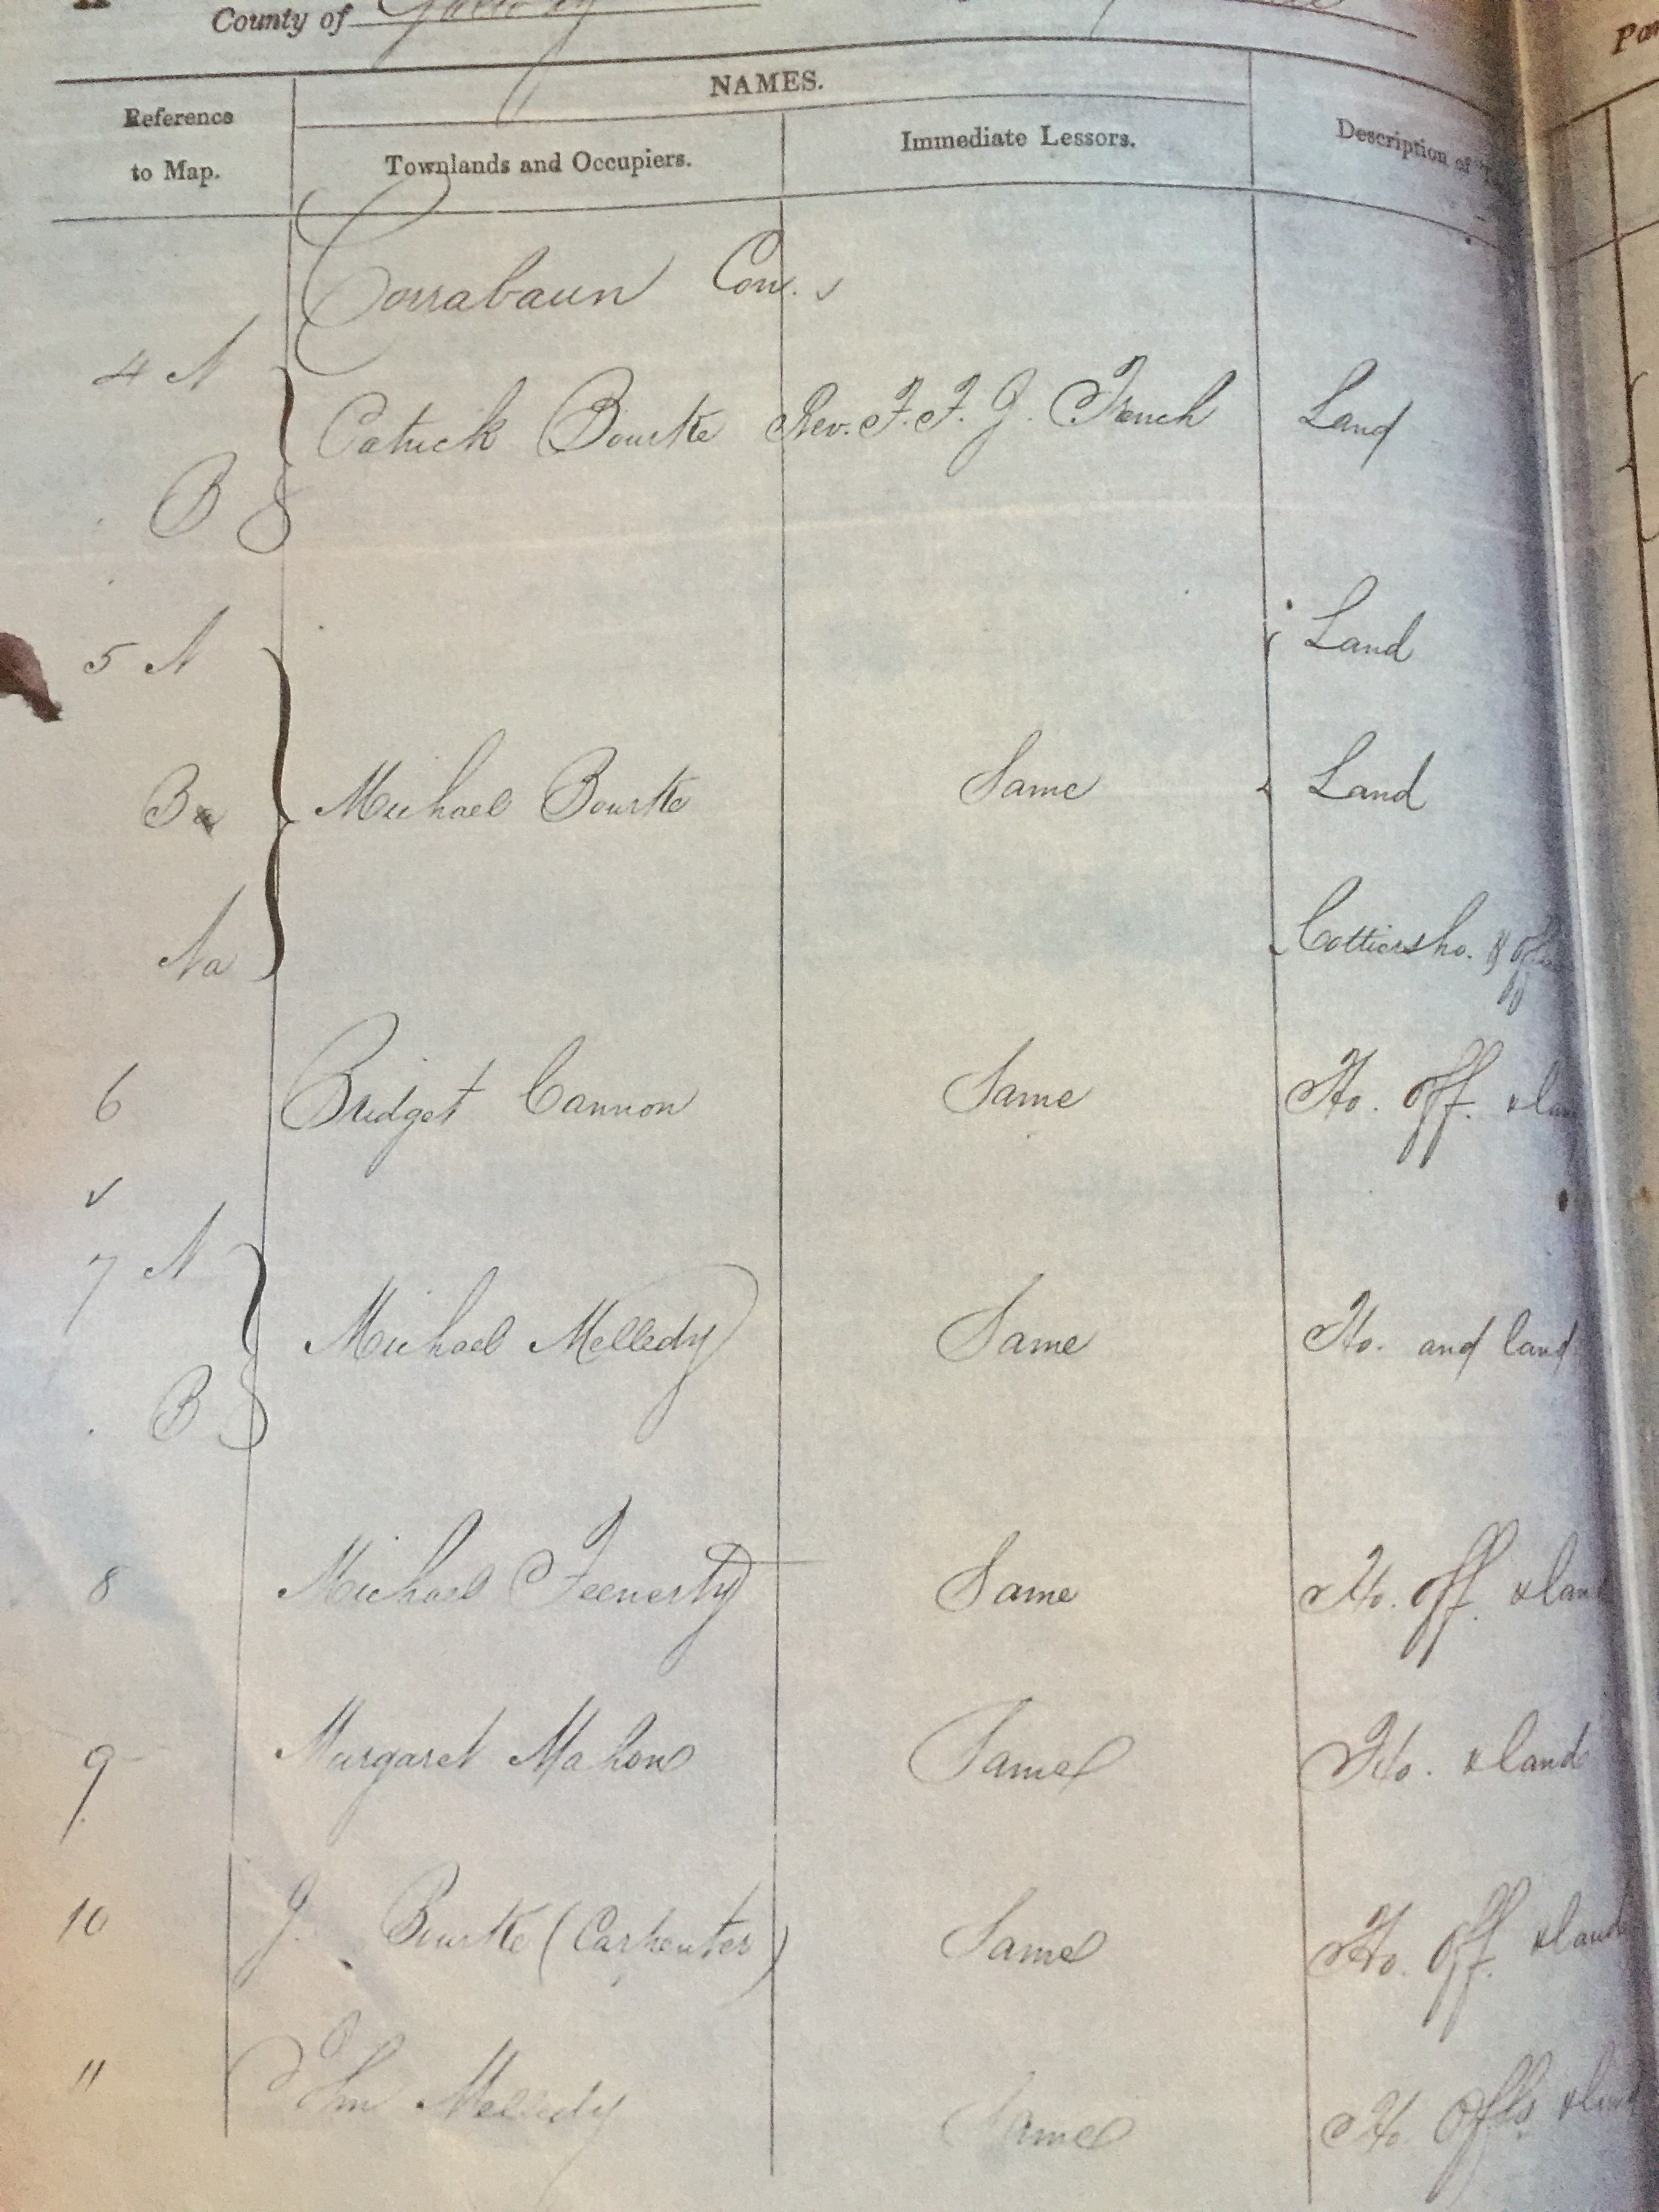 County of Galway
NAMES.
Reference to Map.
Townlands and Occupiers.
Immediate Lessors.
Description of
Corrabaun Con.
4 A
Patrick Bourke Rev. F. F. J. French Land
B
5 A Land
Ba Michael Bourke Same Land
Aa Cottiers ho. & off
6 Bridget Cannon Same Ho. off. & lan
7 A
Michael Melledy Same Ho. and land
B
8 Michael Feenerty Same Ho. off. & land
9 Margaret Mahon Same Ho. & land
10 J. Bourke (Carpenter) Same Ho. off. & land
11 Melledy Same Ho. offs. & land